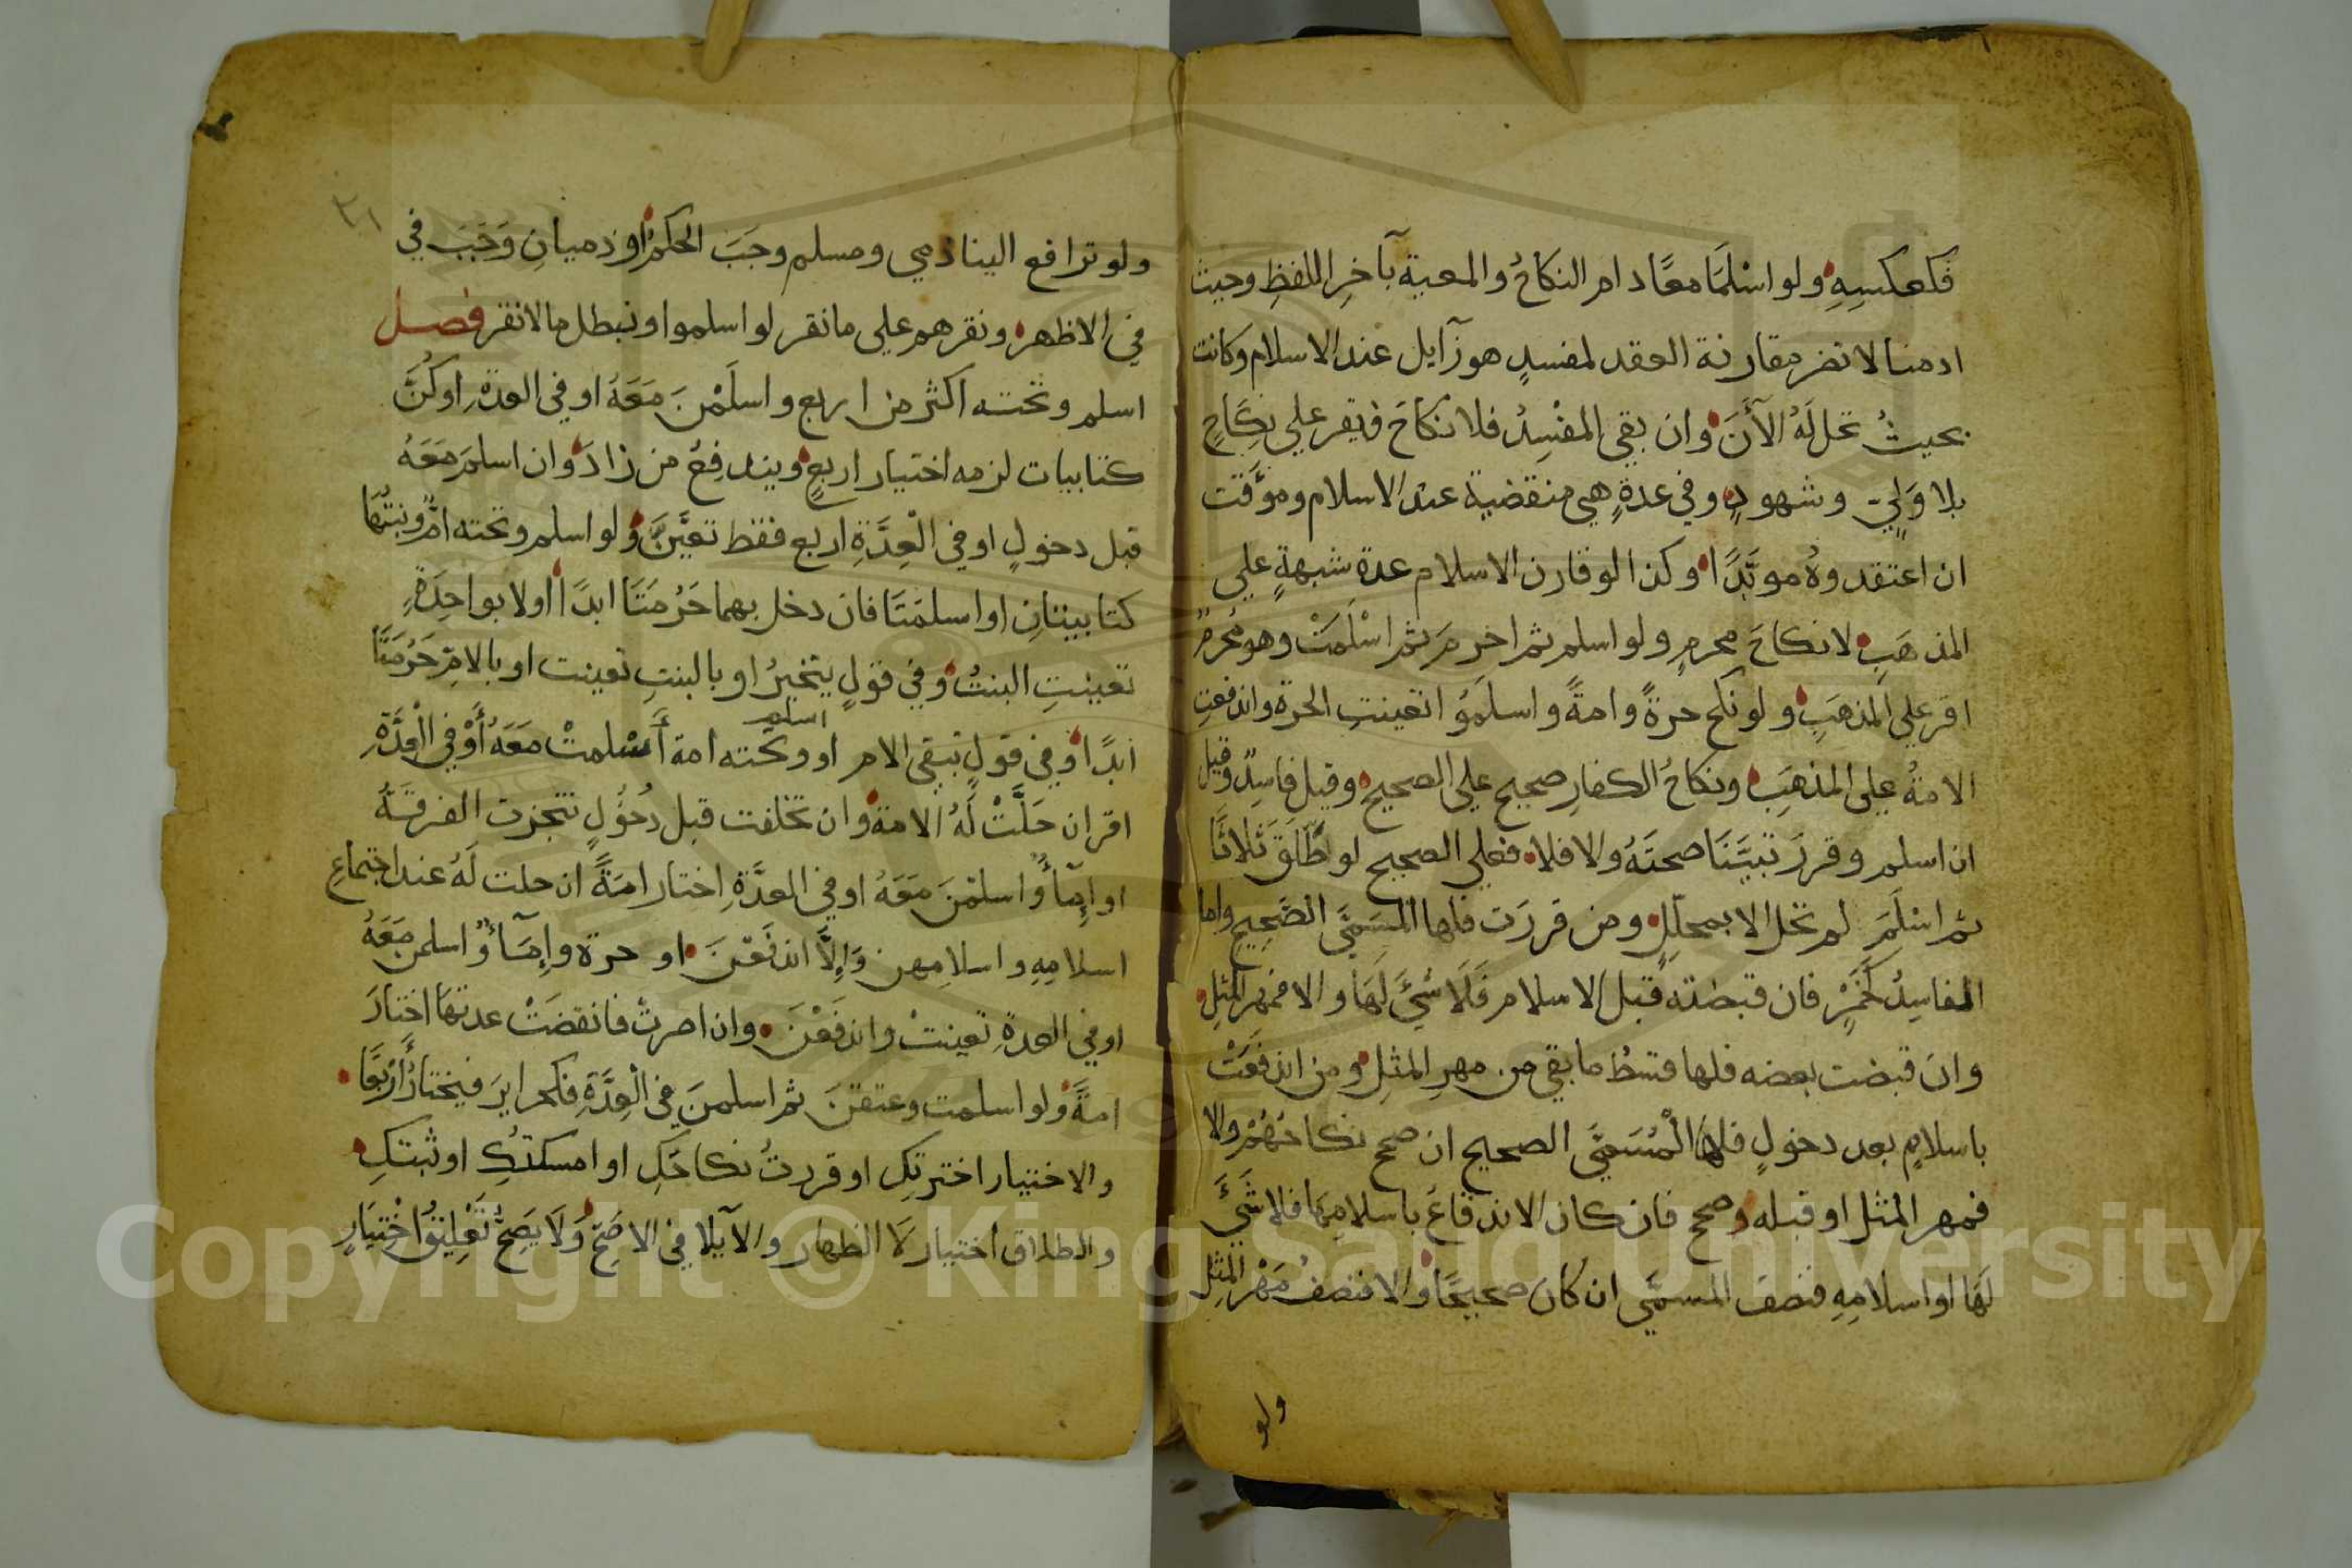 فكعكسِهِ ولو اسْلَمَا معًا دام النكاحُ والمعية بآخِرِ اللفظِ وحيث
ادمنا لا تضر مقارنة العقد لمفسدٍ هو زآيل عند الاسلام وكانت
بحيثُ تحل لَهُ الآنَ وان بقي المفْسِدُ فلا نكاحَ فيقر علي نِكَاحٍ
بلا وَلِيٍّ وشهودٍ وفي عدةٍ هي منقضية عند الاسلام وموَقّت
ان اعتقدوهُ موبَّدًا وكذا لو قارن الاسلام عدة شبهةٍ علي
المذهَبِ لا نكاحَ محرمٍ ولو اسلم ثم احرمَ ثم اسْلَمَتْ وهو مُحرمٌ
اقر علي المذهَبِ ولو نكح حرةً وامةً واسلَمُوا تعينتِ الحرة واندفعتِ
الامةُ علي المذهَبِ ونكاحُ الكفارِ صحيح علي الصحيح وقيل فاسِدٌ وقيل
ان اسلم وقررَ تبيَّنَا صحتَهُ والا فلا فعلي الصحيح لو طَلَّقَ ثَلاثًا
ثم اسْلَمَ لم تحل الا بمحلِّلٍ ومن قررَت فلها المسَمَّي الصَّحِيح واما
الفاسِدُ كَخَمْرٍ فان قبضته قبل الاسلام فَلَا شَيَّ لَهَا والا فمهر المثِلِ
وان قبضت بعضه فلها قسطُ ما بقي من مهرِ المثِلِ ومن اندفَعَتْ
باسلامٍ بعد دخولٍ فلها الْمُسَمَّي الصحيح ان صح نكاحُهُمْ والا
فمهر المثل او قبله وصحح فان كان الاندفاعُ باسلامِهَا فلا شَيَّ
لَهَا او اسلامِهِ فنصفُ المسمَّي ان كان صحيحًا والا فنصفُ مَهْرِ المثِلِ
ولو
٣١
ولو ترافع الينا ذمي ومسلم وجَبَ الحكمُ او ذميانِ وَجَبَ في
في الاظهر ونقرهم علي ما نقر لو اسلموا ونبطل ما لا نقر فصل
اسلم وتحته اكثر من اربع واسلَمْنَ مَعَهُ او في العدةِ او كُنَّ
كتابيات لزمه اختيار اربعٍ ويندفِعُ من زادَ وان اسلمَ مَعَهُ
قبل دخولٍ او في الْعِدَّةِ اربع فقط تعيَّنَّ ولو اسلم وتحته امٌّ وبنتُهَا
كتابيتانِ او اسلمَتَا فان دخل بهما حَرُمَتَا ابدًا او لا بواحِدَةٍ
تعينتِ البنتُ وفي قولٍ يتخيرُ او بالبنتِ تعينت او بالامِّ حَرُمَتَا
ابدًا وفي قولٍ تبقي الام او وتحته امة أَسْلمتْ مَعَهُ أَوْ فِي الْعِدَّةِ
اسلم
اقر ان حَلَّتْ لَهُ الامة وان تخلفت قبل دُخُولٍ تنجزت الفرقَةُ
او إِمَآءٌ واسلمْنَ مَعَهُ او في العدَّةِ اختار امَةً ان حلت لَهُ عند اجتماعِ
اسلامِهِ واسلامِهن وَإِلَّا اندَفَعْنَ او حرة وإِمَآءٌ واسلمن مَعَهُ
او في العدةِ تعينتْ واندفَعْنَ وان اصرتْ فانقضَتْ عدتهَا اختَارَ
امةً ولو اسلمت وعتقنَ ثم اسلمنَ في الْعِدَّةِ فكحرايرَ فيختارُ أَرْبَعًا
والاختيار اخترتكِ او قررتُ نكاحَكِ او امسكتُكِ او ثبتكِ
والطلاق اختيار لَا الظهار والآيلا في الاصَحِّ وَلَا يَصِحُّ تَعْلِيقُ اخْتِيَارٍ
Copyright © King Saud University